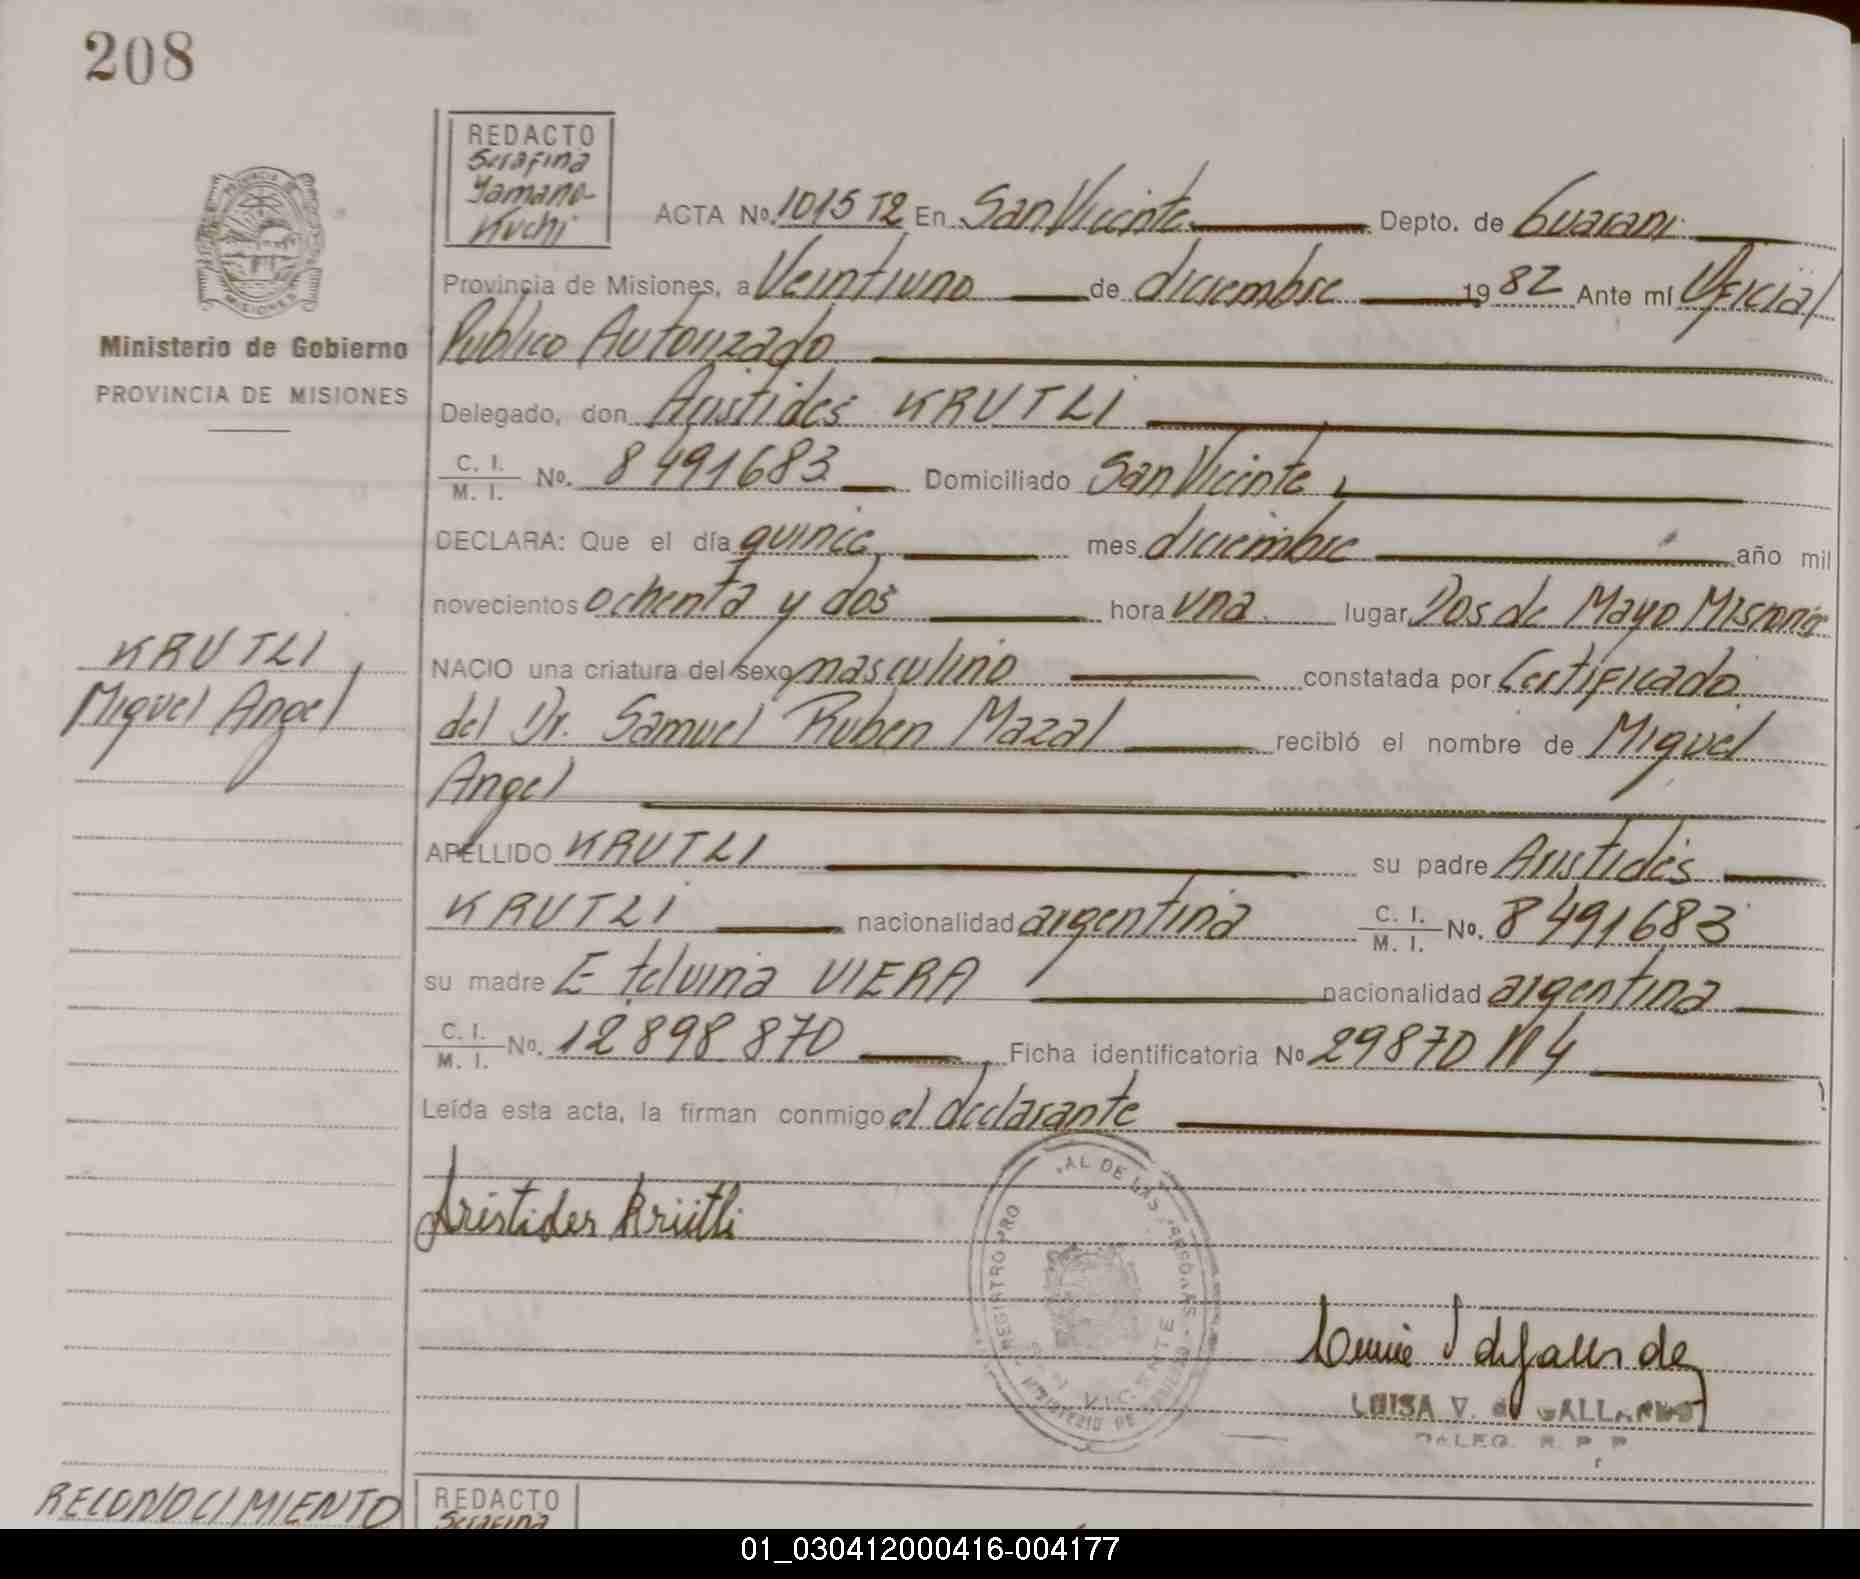 208
REDACTO
Serafina
Yamano-
Kuchi
ACTA No. 1015 T2 En San Vicente Depto. de Guarani
Provincia de Misiones, a Veintiuno de diciembre 19 82 Ante mí Oficial
Publico Autorizado
Ministerio de Gobierno
PROVINCIA DE MISIONES
Delegado, don Aristides KRUTLI
C. I.
M. I. No. 8491683 Domiciliado San Vicente
DECLARA: Que el día quince mes diciembre año mil
novecientos ochenta y dos hora una lugar Dos de Mayo Misiones
KRUTLI,
Miguel Angel
NACIO una criatura del sexo masculino constatada por Certificado
del Dr. Samuel Ruben Mazal recibió el nombre de Miguel
Angel
APELLIDO KRUTLI su padre Aristides
KRUTLI nacionalidad argentina C. I.
M. I. No. 8491683
su madre Etelvina VIERA nacionalidad argentina
C. I.
M. I. No. 12898870 Ficha identificatoria No 29870 M4
Leída esta acta, la firman conmigo el declarante
Aristides Krütli
REGISTRO PRO AL DE LAS PERSONAS
MINISTERIO DE
VICENTE
LUISA V. de GALLARDO
DELEG. R. P. P.
RECONOCIMIENTO
REDACTO
Serafina
01_030412000416-004177